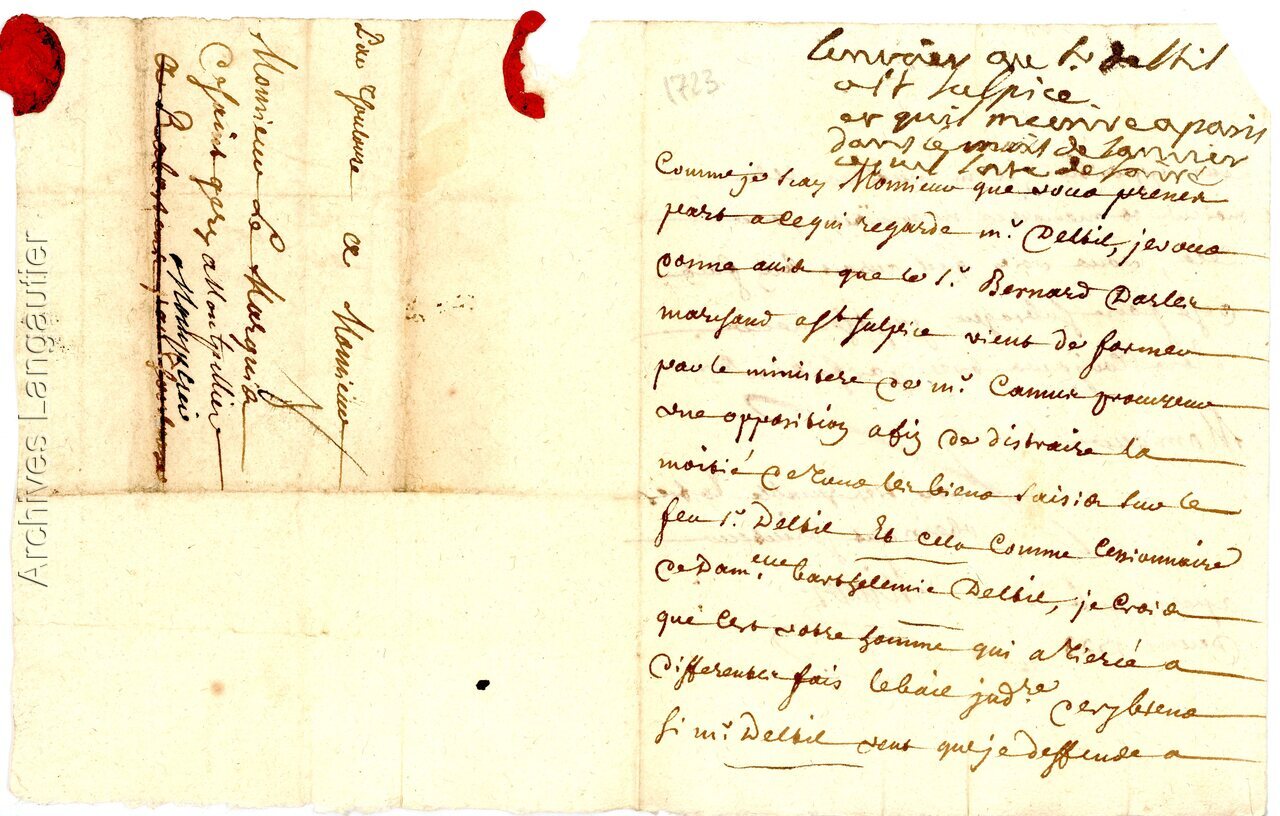 Par Thoulouze
a Monsieur
Monsieur Le Marquis
a Montpellier
a Montpellier
Archives Langautier
1723
lenvoier que sr delbil
a st sulpice
et quil mecrive a paris
dans le mois de janvier
Comme je scay Monsieur que vous prenes
part a ce qui regarde mr. Delbil, je vous
donne avis que le sr. Bernard Darles
marchand a st sulpice vient de former
par le ministere de mr. Camus procureur
une opposition afin de distraire la
moitié de tous les biens saisis sur le
feu sr. Delbil Et cela comme cessionnaire
de Dam.elle barthelemie Delbil, je crois
que cest votre homme qui a tiercé a
differentes fois le baie jud.re des biens
si mr. Delbil veut que je deffende a